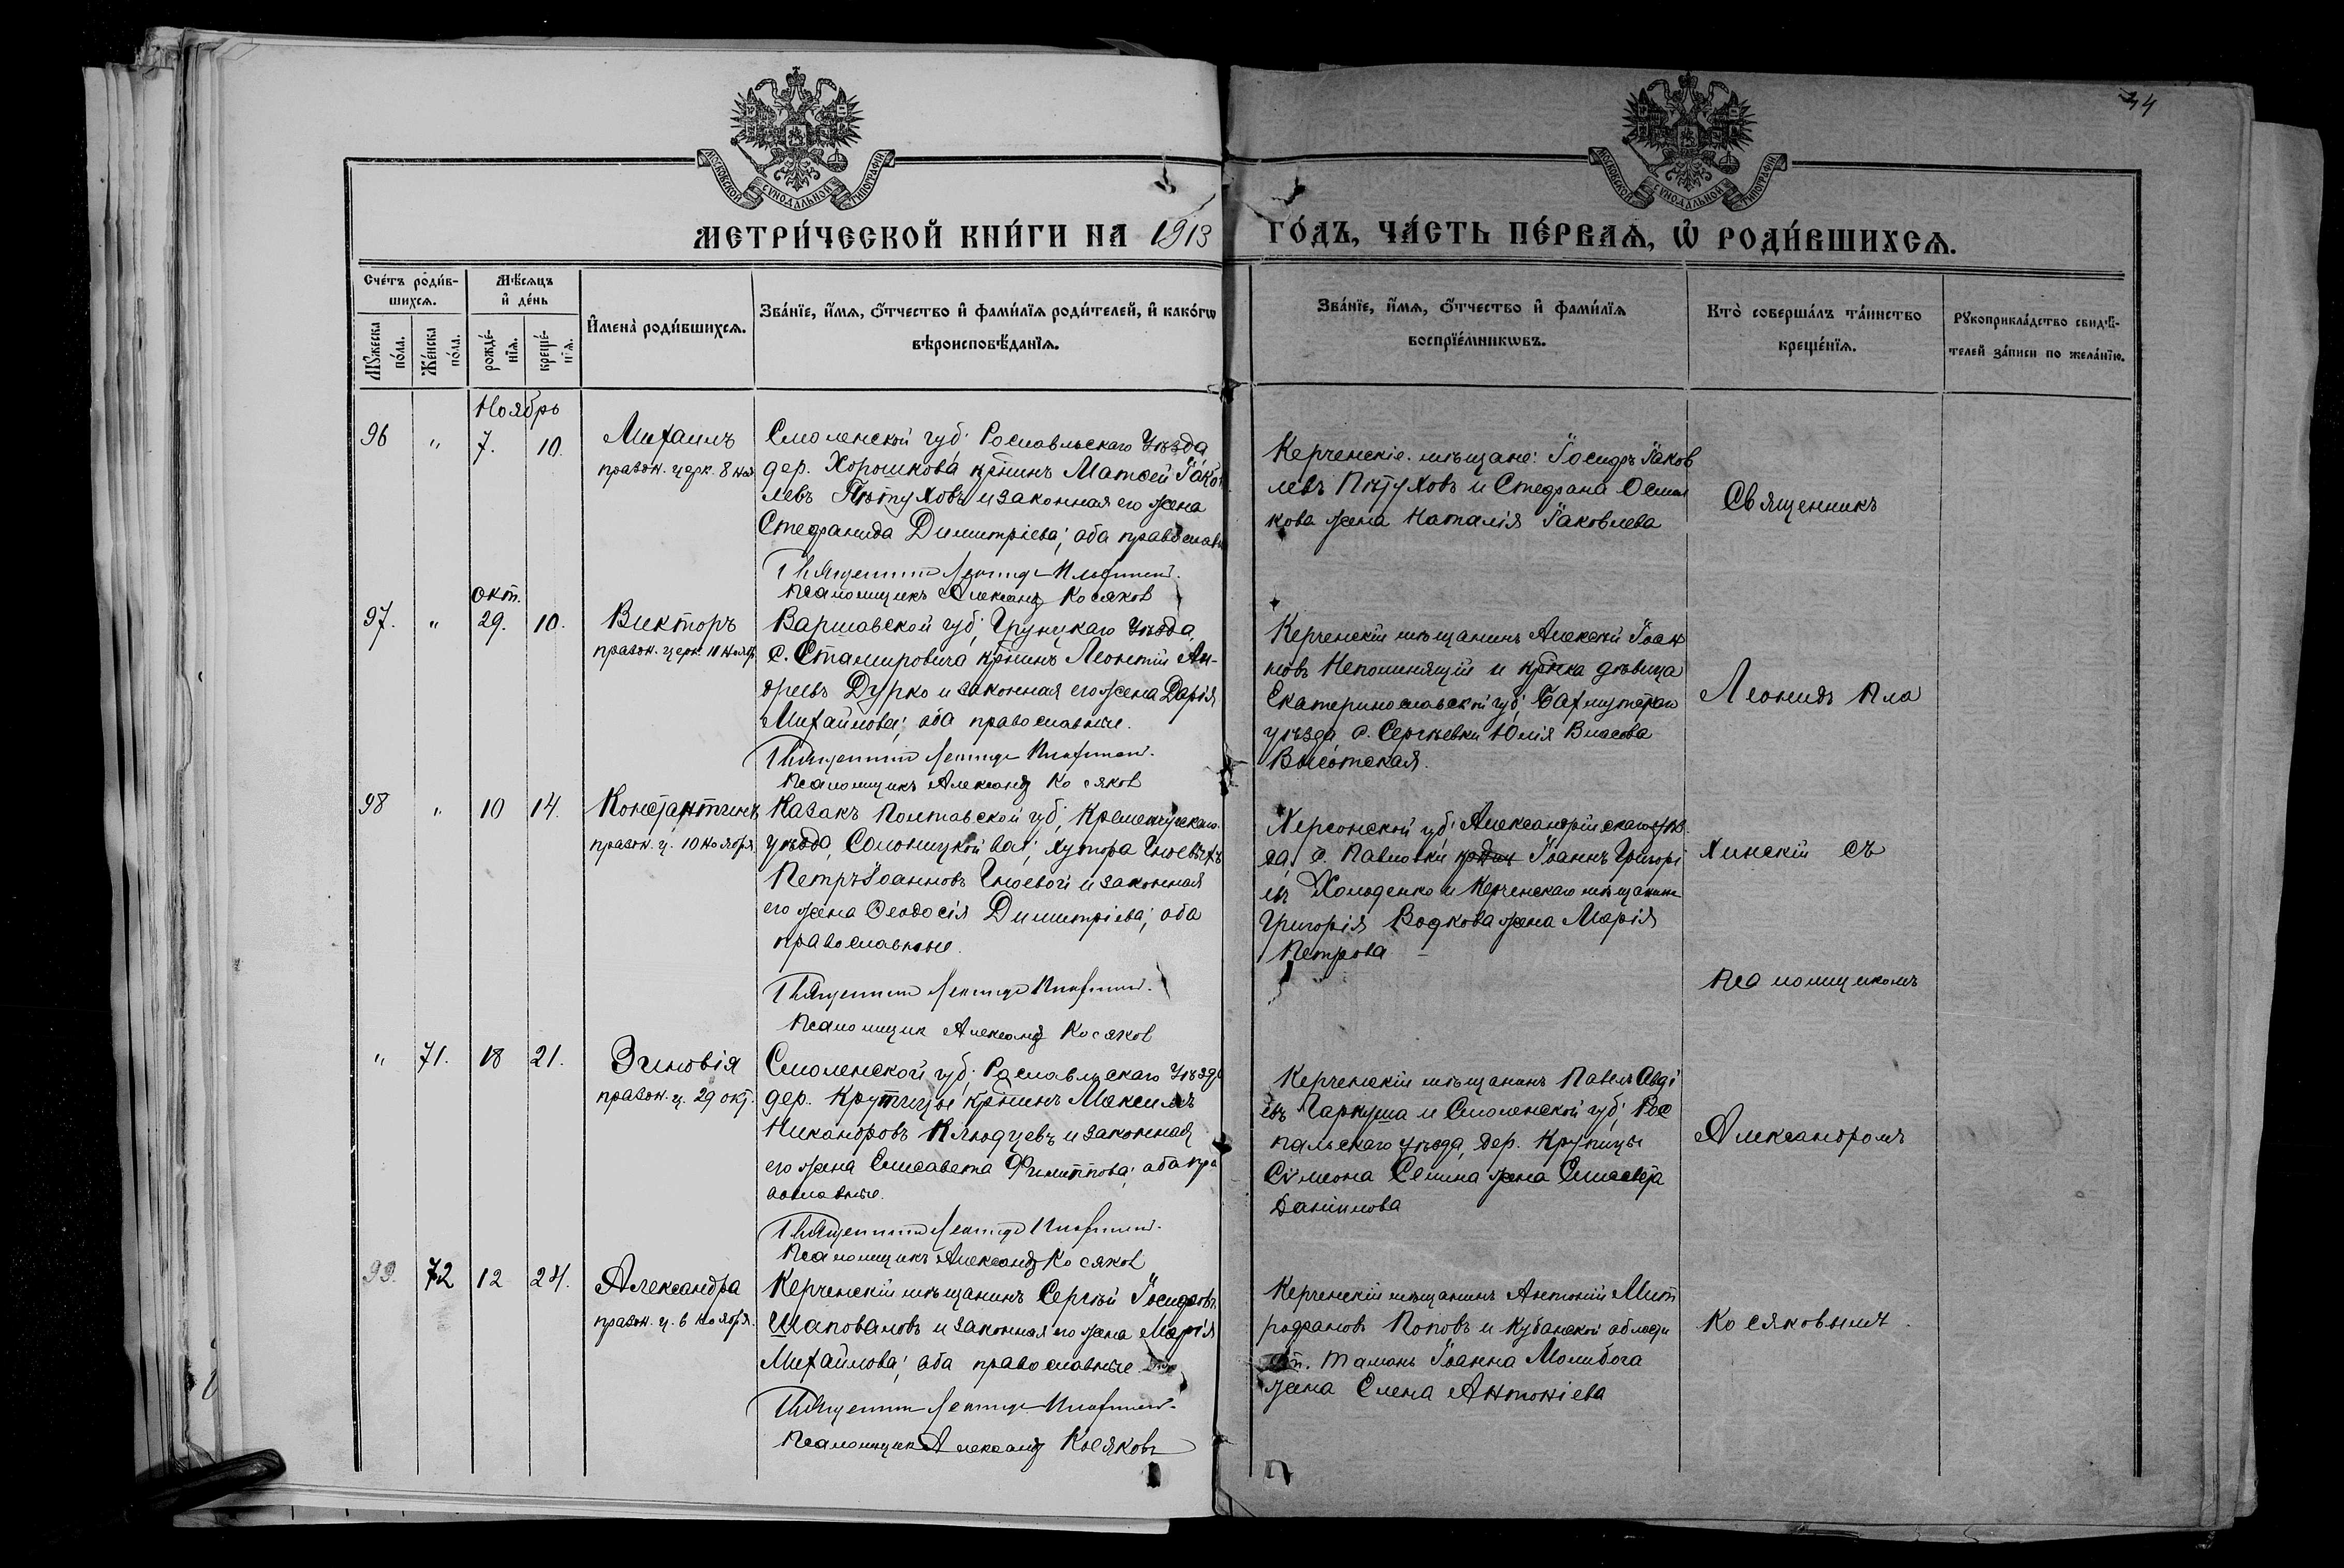 44
МОСКОВСКОЙ СѴНОДАЛЬНОЙ ТИПОГРАФІИ
МОСКОВСКОЙ СѴНОДАЛЬНОЙ ТИПОГРАФІИ
МЕТРИ́ЧЕСКОЙ КНИ́ГИ НА 1913 ГО́ДЪ, ЧА́СТЬ ПЕ́РВАѦ, Ѡ҆ РОДИ́ВШИХСѦ.
Сче́тъ роди́в-
шихсѧ.
Мꙋ́жеска
по́ла.
Же́нска
по́ла.
Мѣ́сѧцъ
и҆ де́нь
рожде́-
нїѧ.
креще́-
нїѧ.
И҆мена̀ роди́вшихсѧ.
Зва́нїе, и҆́мѧ, ѻ҆́тчество и҆ фами́лїѧ роди́телей, и҆ како́гѡ
вѣроисповѣ́данїѧ.
Зва́нїе, и҆́мѧ, ѻ҆́тчество и҆ фами́лїѧ
воспрїе́мникѡвъ.
Кто̀ соверша́лъ та́инство
креще́нїѧ.
Рꙋкоприкла́дство свидѣ́-
телей за́писи по жела́нїю.
Ноябрь
96 " 7. 10.
Михаилъ
празон. церк. 8 ноя
Смоленской губ. Рославльскаго уѣзда,
дер. Хорошкова кр҃нинъ Матѳей Іаков
левъ Пѣтуховъ и законная его жена
Стефанида Димитріева; оба православн
Священникъ Леонидъ
Псаломщикъ Александ Косяков
Керченскіе мѣщане: Іосифъ Іаков
левъ Пѣтуховъ и Стефана
кова жена Наталія Іаковлева
Священникъ
окт.
97. " 29. 10.
Викторъ
празон. церк. 11 ноября
Варшавской губ. Груецкаго уѣзда,
с. Станировича кр҃нинъ Леонтій Ан-
дреевъ Дурко и законная его жена Дарія
Михайлова; оба православные.
Священникъ Леонидъ
Псаломщикъ Александ Косяков
Керченскій мѣщанинъ Алексѣй Іоан
новъ Непомнящій и кр҃нка дѣвица
Екатеринославской губ. Бахмутскаго
уѣзда, с. Сергѣевки Юлія Власова
Высотская.
Леонидъ Пла
98 " 10 14.
Константинъ
празон. ц. 10 ноября
Казакъ Полтавской губ, Кременчугскаго
уѣзда, Солоницкой вол; хутора Гноевыхъ
Петръ Іоанновъ Гноевой и законная
его жена Ѳеодосія Димитріева; оба
православные.
Священникъ Леонидъ
Псаломщик Александ Косяков
Херсонской губ. Александрійскаго уѣз
да, с. Павловки Іоаннъ Григорі
евъ Холоденко и Керченскаго мѣщанина
Григорія Водкова жена Марія
Петрова
хинскій съ
псаломщикомъ
" 71. 18 21.
Зиновія
празон. ц. 29 окт.
Смоленской губ. Рославльскаго уѣзда
дер. Крутицы кр҃нинъ Максимъ
Никаноровъ Клюдцевъ и законная
его жена Елисавета Филиппова; оба пра
вославные.
Священникъ Леонидъ
Псаломщикъ Александ Косяков
Керченскій мѣщанинъ Павелъ Авді
евъ Гаркуша и Смоленской губ. Рос
уѣзда, дер. Крутицы
Сѵмеона Семина жена Елисавета
Даніилова
Александромъ
99. 72 12 24.
Александра
празон. ц. 6 ноября.
Керченскій мѣщанинъ Сергѣй Іосифовъ
Шаповаловъ и законная его жена Марія
Михайлова; оба православные.
Священникъ Леонидъ
Псаломщик Александ Косяковъ
Керченскій мѣщанинъ Антоній Мит
рофановъ Поповъ и Кубанской области
ст. Тамань Іоанна Молибога
жена Елена Антоніева
Косяковымъ.